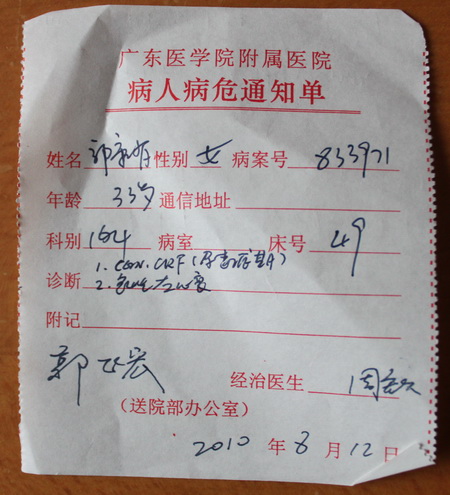 广东医学院附属医院
病人病危通知单
姓名 性别 女 病案号 833971
年龄 33岁 通信地址
科别 164 病室 床号 49
诊断 1. CGN. CRF (尿毒症期)
2. 急性左心衰
附记
郭
经治医生 周
(送院部办公室)
2010 年 8 月 12 日